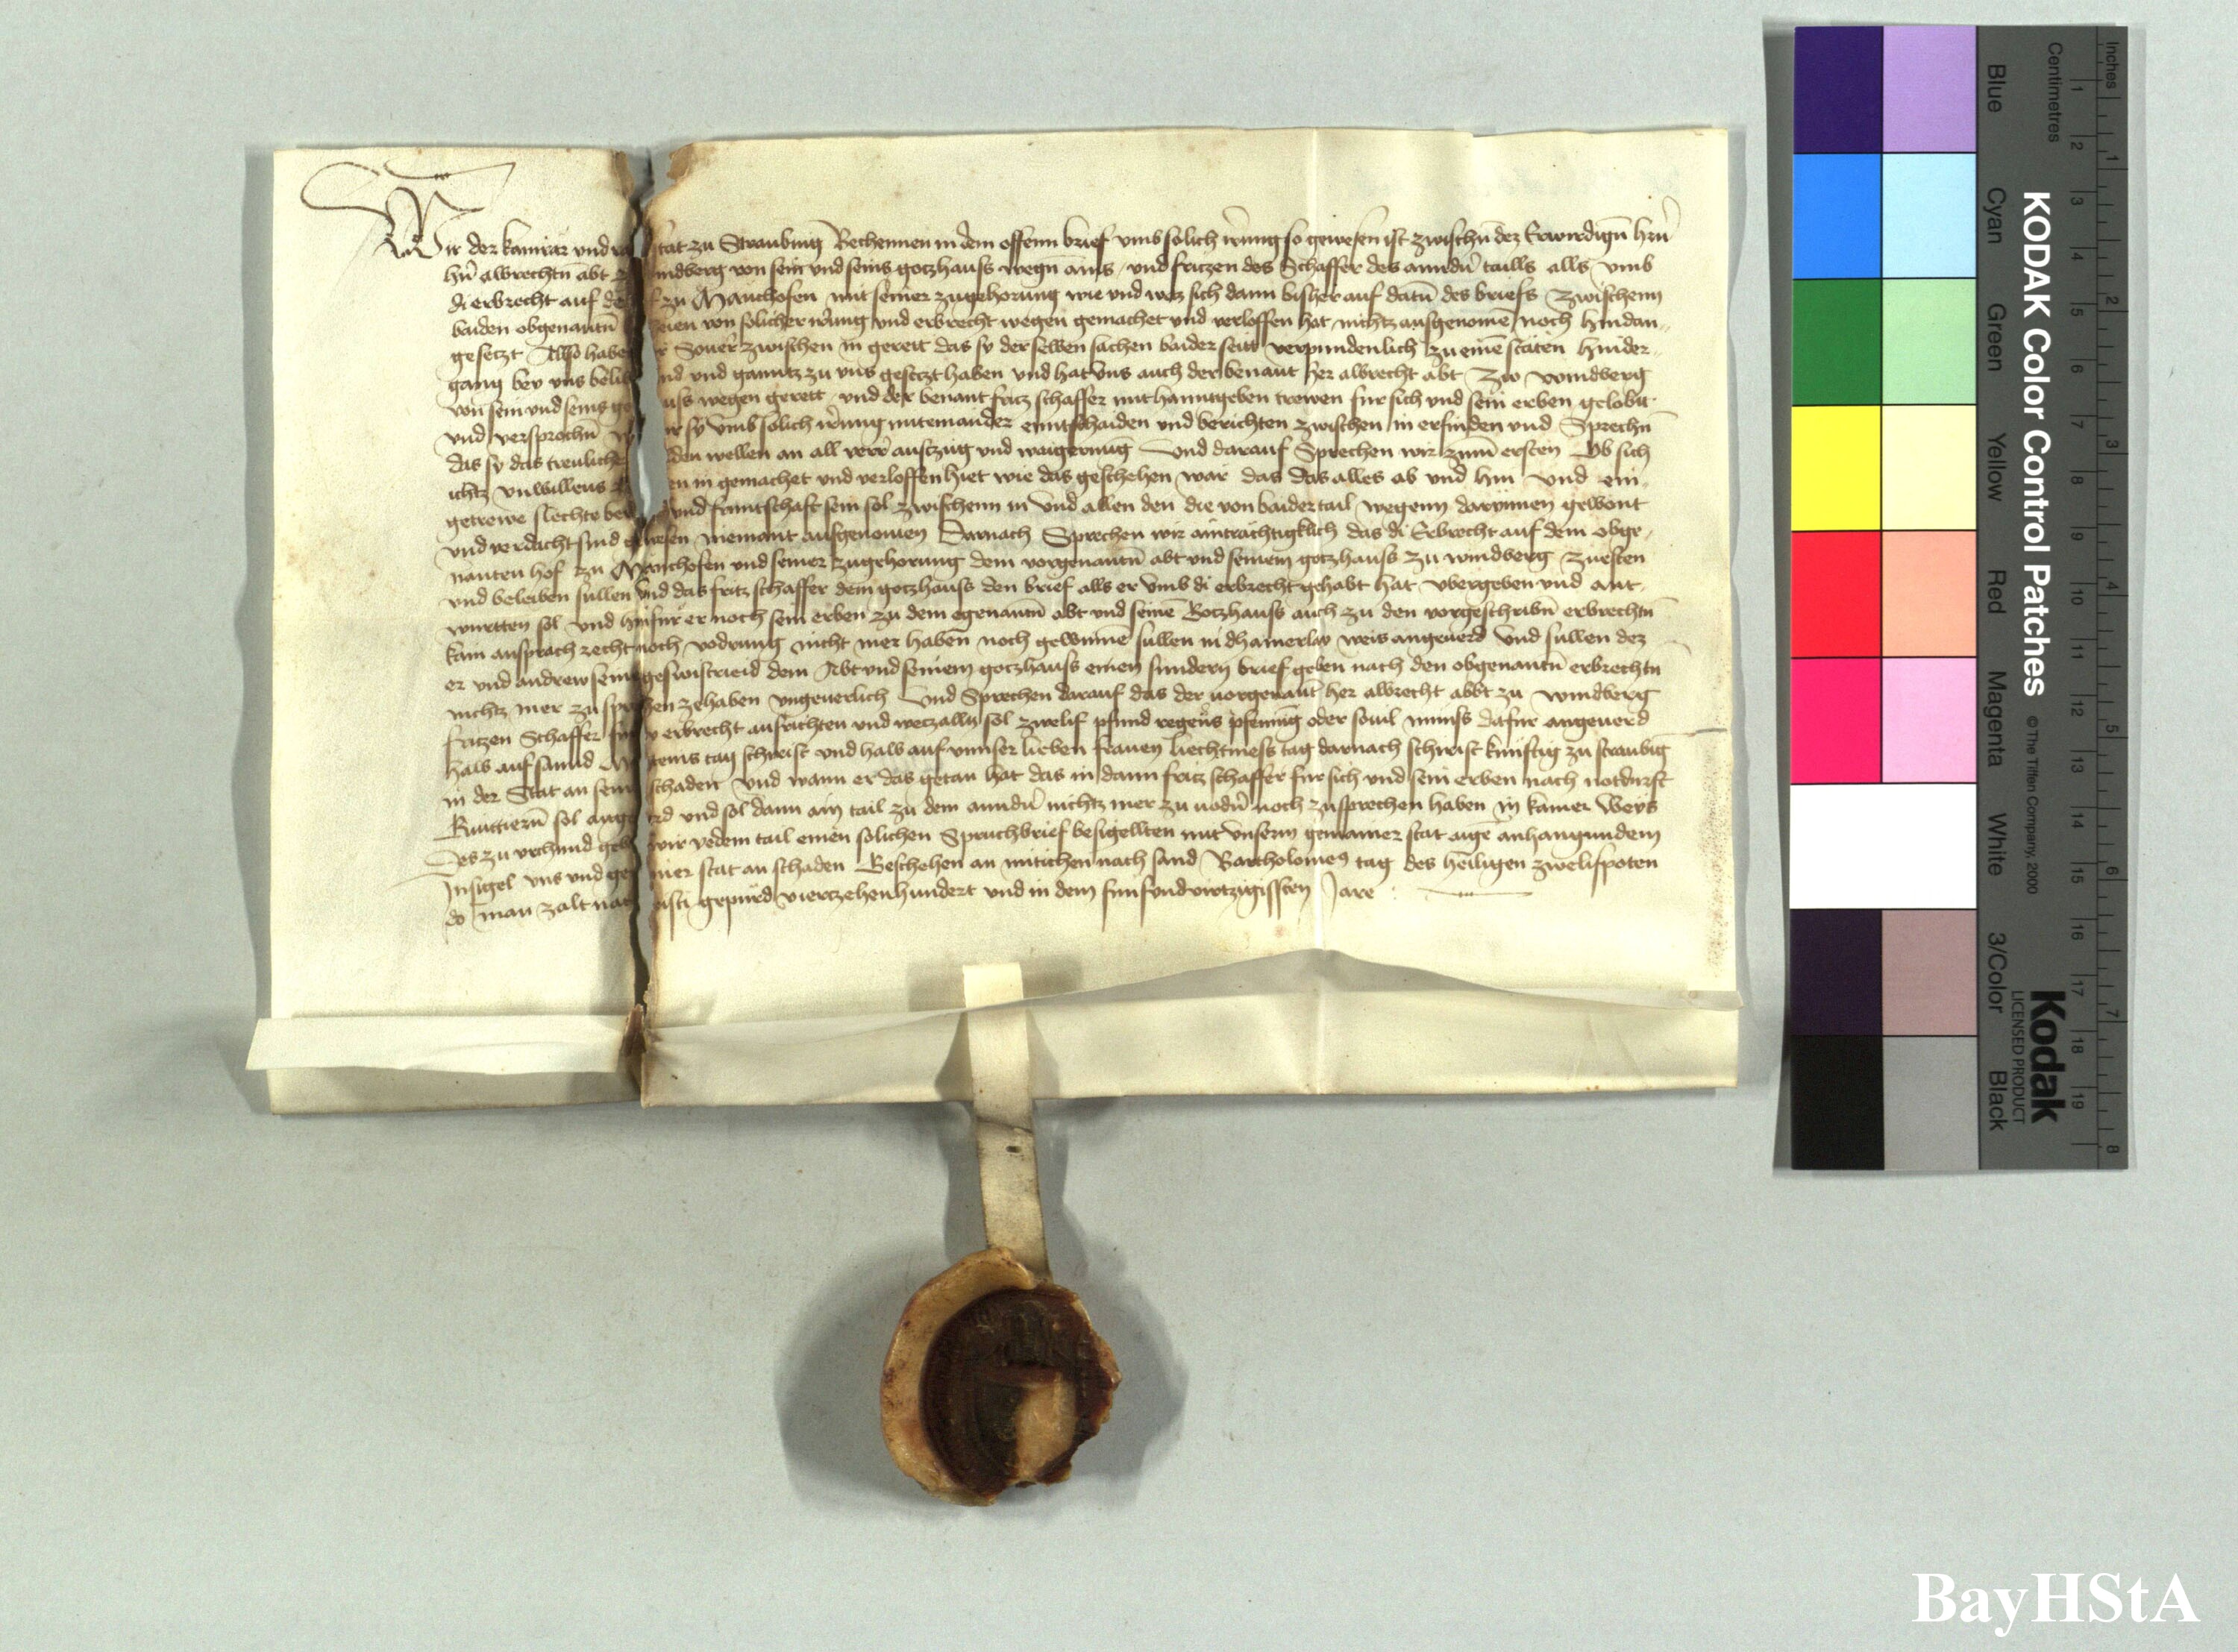 Wir der kamrär und ra stat zu Straubing Bechennen in dem offenn brief umb solich irrung so gewesen ist zwischn dez Erwirdign hern
hern albrechtn abt z indberg von sein und seins gotzhauss wegn ains / und fritzen des Schaffer des anndern taills alls umb
di erbrecht auf de f zu Manchofen mit seiner zugehorung wie und waz sich dann bisher auf datum des briefs zwischenn
baiden obgenantn von solicher irrung und erbrecht wegen gemachet und verloffen hat nichtz ausgenomen noch hindan
gesetzt Also habe Sover zwischen in gerett das sy derselben sachen baider seitt verpundenlich zu einem stäten hinder
gang bey uns belib und ganntz zu uns gesetzt haben und hat uns auch der benant her albrecht abt zw windberg
von sein und seins go uss wegen gerett und der benant fritz schaffer mit hanntgeben trewen fur sich und sein erben gelobt
und versprochn w ir sy umb solich irrung miteinander enntschaiden und berichten zwischen in erfinden und Sprechn
das sy das treulich lden wellen an all verr auszug und waigerung Und darauf Sprechen wir zum ersten Ob sich
ichtz unwillens en in gemachet und verloffen hiet wie das geschehen wär das das alles ab und hin und ein
getrewe slechte be und frunttschaft sein sol zwischenn in und allen den die von baider tail wegenn darynnen gewont
und verdacht sind gewesen niemant ausgenomen Darnach Sprechen wir aintrachtigklich das di Erbrecht auf dem obge
nanten hof zu Manchofen und seiner zugehorung dem vorgenantn abt und seinem gotzhauss zu windberg zuesten
und beleiben sullen Und das fritz schaffer dem gotzhauss den brief alls er umb di erbrecht gehabt hat ubergeben und ant
wurtten sol und hinfur er noch sein erben zu dem egenantn abt und seine Gotzhauss auch zu den vorgeschribn erbrechtn
kain ansprach recht noch vodrung nicht mer haben noch gewinnen sullen in dhainerlay weis angeuerd Und sullen dez
er und andrew sein geswistrieid dem Abt und seinem gotzhauss einen sundern brief geben nach den obgenantn erbrechtn
nichtz mer zu sprechen zehaben ungeuerlich Und Sprechen darauf das der vorgenant her albrecht abbt zu windberg
fritzen Schaffer fur erbrecht ausrichten und wetzalln sol zwelif pfund regens pfening oder souil munss dafur angeuerd
halb auf sannd M teins tag schierist und halb auf unnser lieben frauen liechtmess tag darnach schirist kunftig zu straubing
in der Stat an sein schaden Und wann er das getan hat das in dann fritz schaffer fur sich und sein erben nach notdurft
Quittiern sol ange rd und sol dann ain tail zu dem anndern nichtz mer zu vodern noch zusprechen haben in kainer Weys
Des zu urchund geb wir yedem tail einen solichen Spruchbrief besigellten mit unserm gemainer stat aigem anhangundem
Insigel uns und ge iner stat an schaden Beschehen an mitichen nach sand Bartholomes tag des heiligen zwelifpoten
do man zalt nach isti gepurd vierzehenhundert und in dem funfundvirtzigissten Jare
KODAK Color Control Patches © The Tiffen Company, 2000
Kodak
LICENSED PRODUCT
Inches 1 2 3 4 5 6 7 8
Centimetres 1 2 3 4 5 6 7 8 9 10 11 12 13 14 15 16 17 18 19
Blue Cyan Green Yellow Red Magenta White 3/Color Black
BayHStA